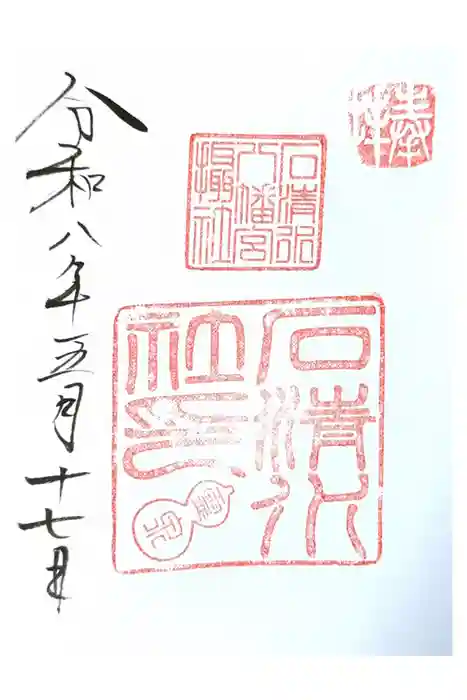 奉拝
石清水
八幡宮
攝社
石清水
社印
令和八年五月十七日